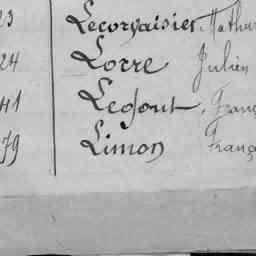 23 Lecorvaisier Mathur
24 Lorre Julien
41 Legout Franç
79 Limon França